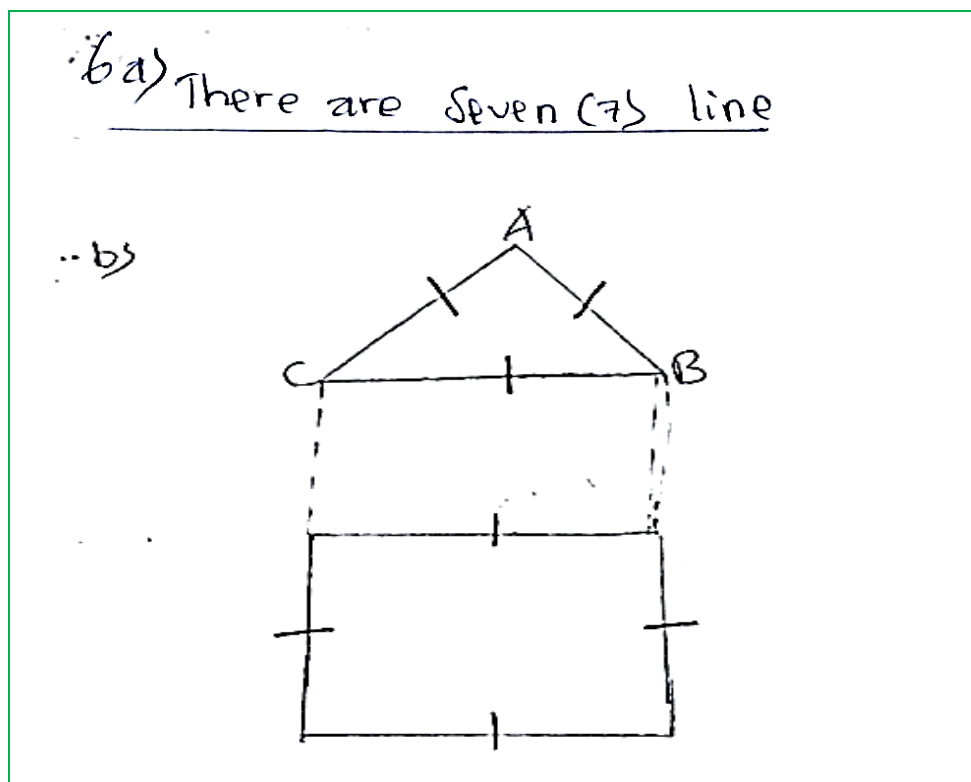 6a) There are Seven (7) line
b)
A
C
B